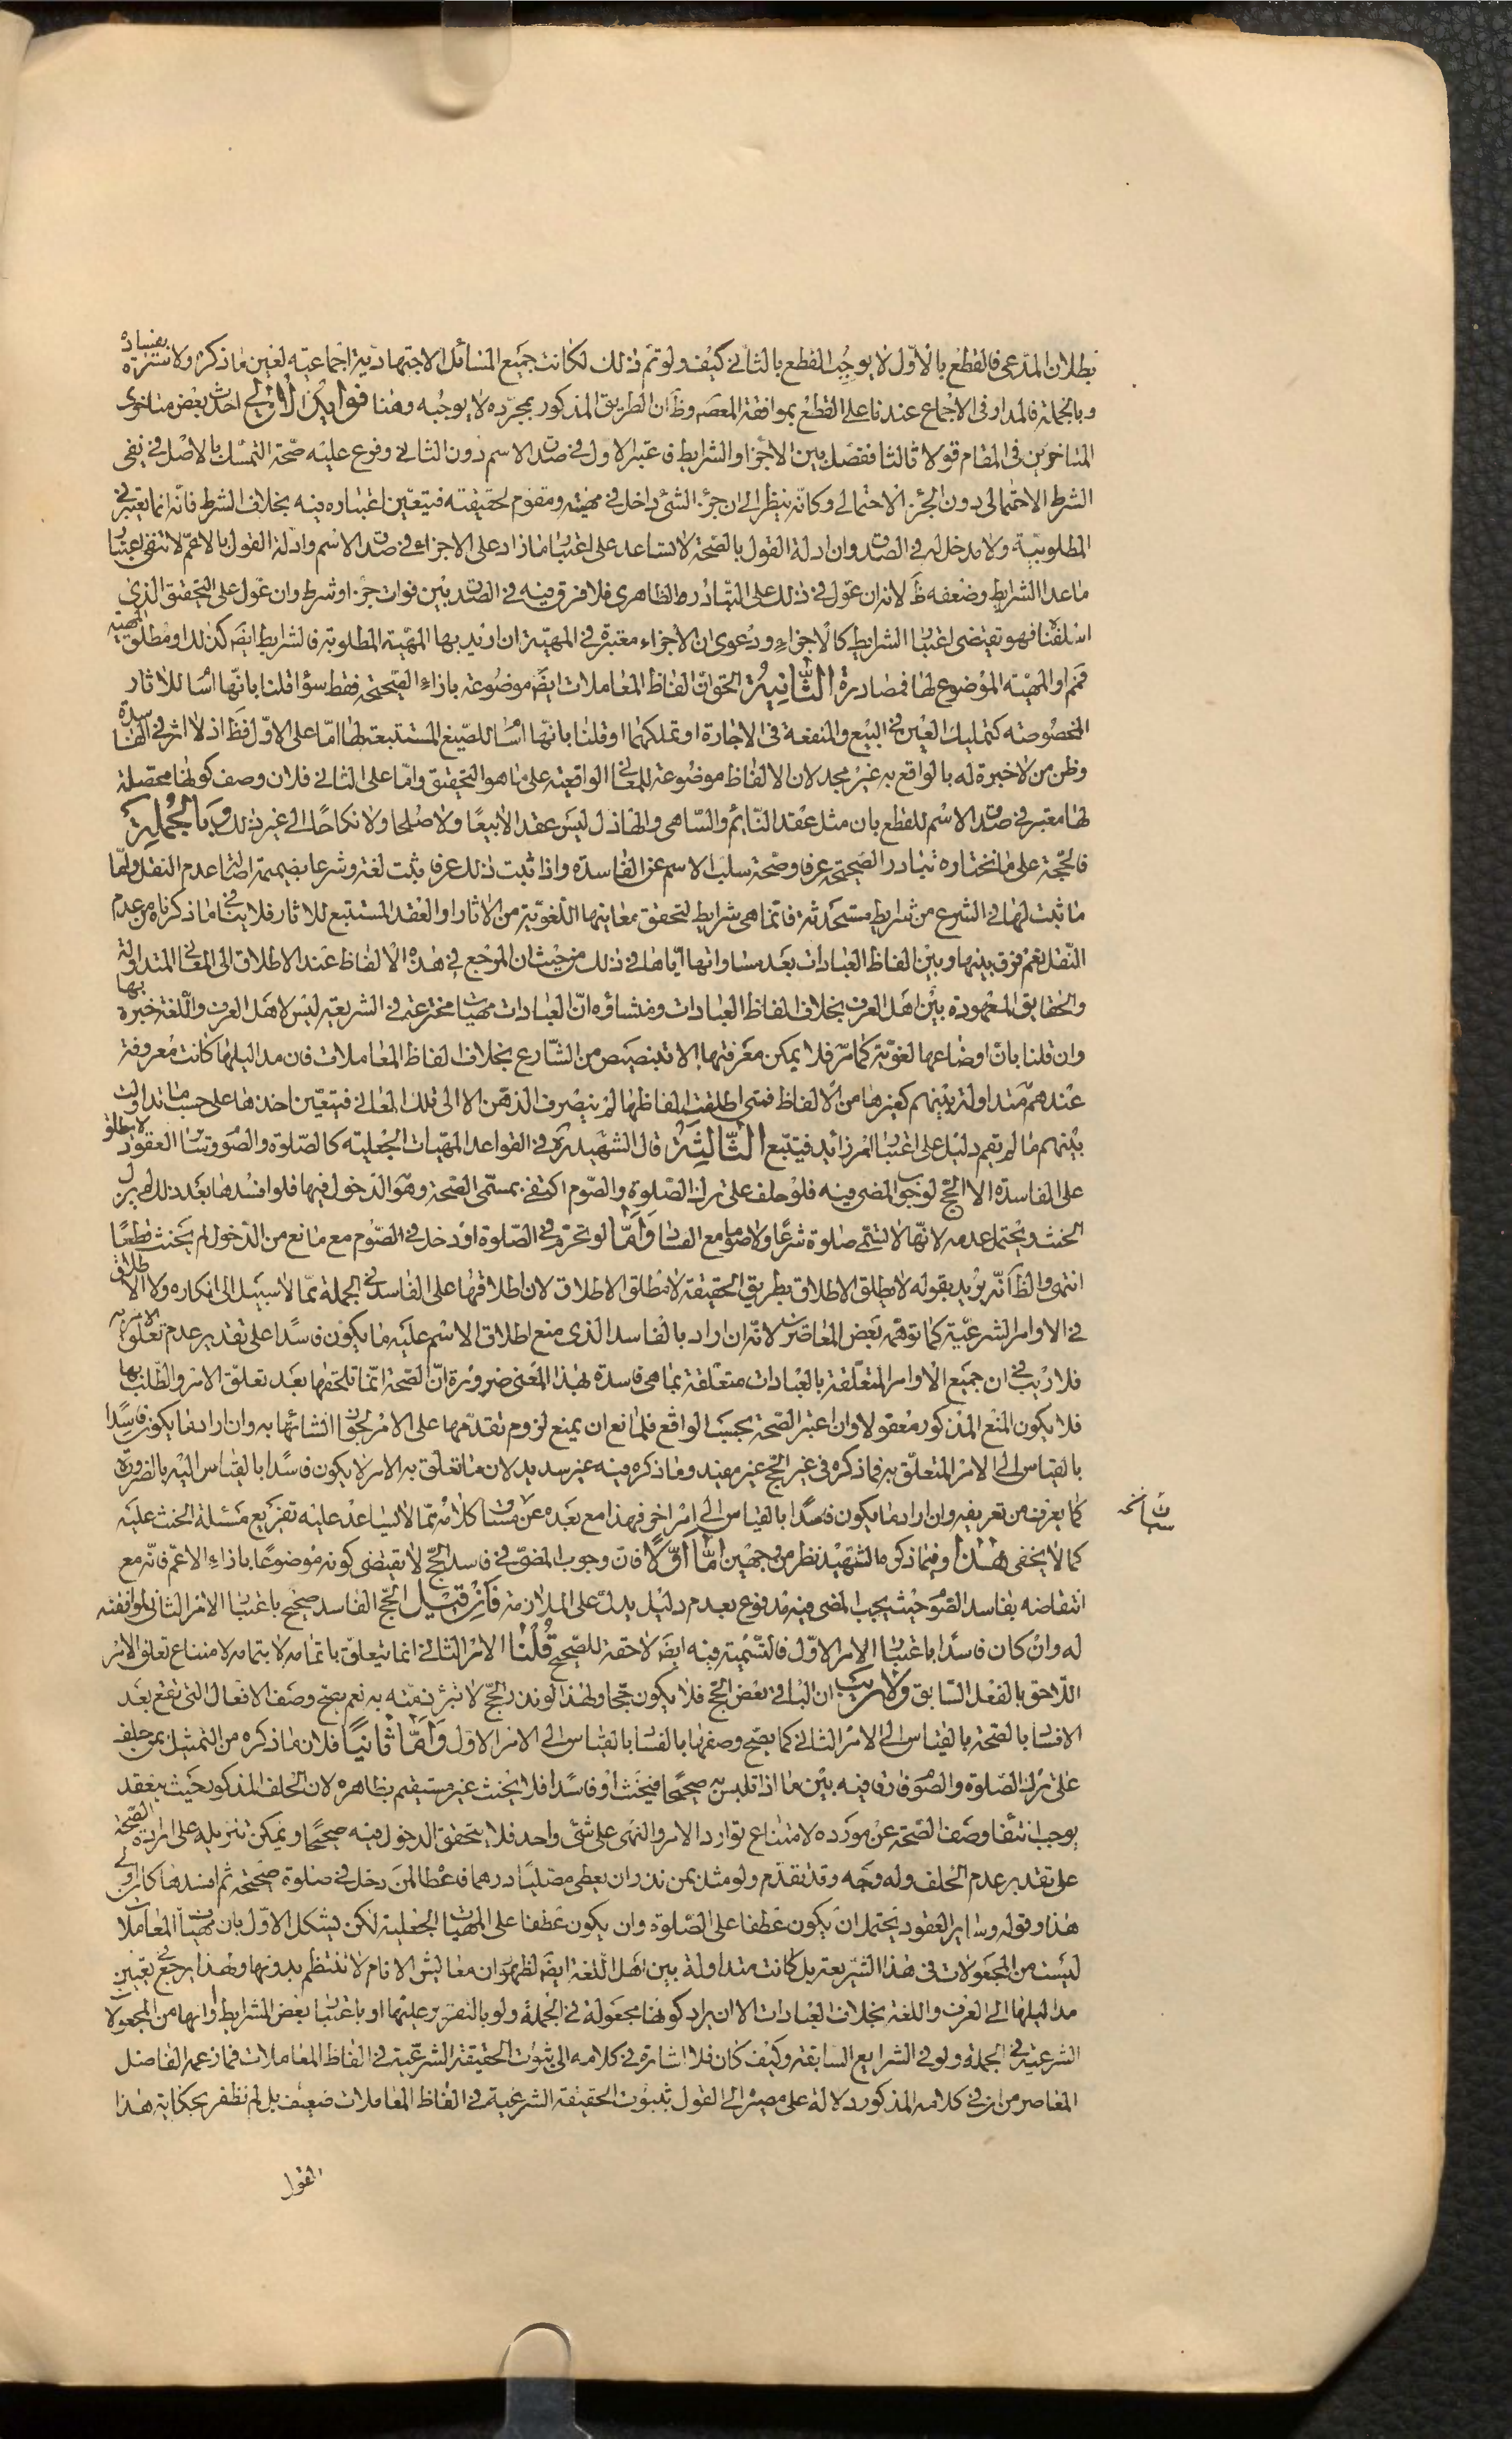 بطلان المدعى فالقطع بالاوّل لا يوجب القطع بالثانى كيف ولو تم ذلك لكانت جميع المسائل الاجتهادية اجماعيّة لغين ما ذكره ولا سترة بفساده
وبالجملة فالمدار فى الاجماع عندنا على القطع بموافقة المعصوم وظ ان الطريق المذكور بمجرّده لا يوجبه وهنا فوائد الاولى احدث بعض متاخرى
المتاخرين فى المقام قولا ثالثا ففصّل بين الاجزا والشرايط فاعتبر الاول فى صدق الاسم دون الثانى وفرع عليه صحّة التمسّك بالاصل فى نفى
الشرط الاحتمالى دون الجزء الاحتمالى وكانّه ينظر الى ان جزء الشئ داخل فى مهيته ومقوم لحقيقته فيتعيّن اعتباره فيه بخلاف الشرط فانّه انما يعتبر فى
المطلوبيّة ولا مدخل له فى الصدق وان ادلة القول بالصّحة لا تساعد على اعتبار ما زاد على الاجزاء فى صدق الاسم وادلة القول بالاعمّ لا تنفى اعتبار
ما عدا الشرايط وضعفه ظَ لانه ان عوّل فى ذلك على التبادر والظاهرى فلا فرق فيه فى الصدق بين فوات جزء او شرط وان عوّل على التحقيق الذى
اسلفنا فهو يقتضى اعتبار الشرايط كالاجزاء ودعوى ان الاجزاء معتبرة فى المهيّة ان اريد بها المهيّة المطلوبة فالشرايط ايضَ كذلك او مطلق المهيّة
فمم او المهيّة الموضوع لها فمصادرة الثّانية الحق انّ الفاظ المعاملات ايضَ موضوعة بازاء الصّحيحة فقط سواء قلنا بانّها اسام للاثار
المخصوصة كتمليك العين فى البيع والمنفعة فى الاجارة او تملكهما او قلنا بانّها اسام للصّيغ المستتبعة لها امّا على الاوّل فظَ اذ لا اثر فى الفاسدة
وظن من لا خبرة له بالواقع به غير مجد لان الالفاظ موضوعة للمعانى الواقعيّة على ما هو التحقيق وامّا على الثانى فلان وصف كونها محصلة
لها معتبر فى صدق الاسم للقطع بان مثل عقد النّائم والسّاهى والهازل ليس عقدا لا بيعًا ولا صلحا ولا نكاحًا الى غير ذلك وبالجملة
فالحجّة على ما نختاره تبادر الصّحيحة عرفا وصحّة سلب الاسم عن الفاسدة واذا ثبت ذلك عرفا يثبت لغة وشرعا بضميمة اصالة عدم النقل وامّا
ما ثبت لها فى الشرع من شرايط مستحدثة فانّما هى شرايط لتحقق معانيها اللّغويّة من الاثار او العقد المستتبع للاثار فلا ينافى ما ذكرناه من عدم
النّقل نعم فرق بينها وبين الفاظ العبادات بعد مساواتها ايّاها فى ذلك من حيث ان المرجع فى هذه الالفاظ عند الاطلاق الى المعانى المتداولة
والحقايق المعهودة بين اهل العرف بخلاف الفاظ العبادات ومنشاؤه انّ العبادات مهيّات مخترعة فى الشريعة ليس لاهل العرف واللّغة خبرة بها
وان قلنا بانّ اوضاعها لغويّة كما مرّ فلا يمكن معرفتها الا بتنصيص من الشّارع بخلاف الفاظ المعاملات فان مداليلها كانت معروفة
عندهم متداولة بينهم كغيرها من الالفاظ فمتى اطلقت الفاظها لم ينصرف الذهن الا الى تلك المعانى فيتعيّن اخذها على حسب ما تداولت
بينهم ما لم يقم دليل على اعتبار امر زائد فيتبّع الثّالثة قال الشهيد ره فى القواعد المهيّات الجعليّه كالصّلوة والصّوم وسائر العقود لا يطلق
على الفاسدة الا الحجّ لوجوب المضى فيه فلو حلف على ترك الصّلوة والصّوم اكتفى بمسمّى الصّحة وهو الدّخول فيها فلو افسدها بعد ذلك لم يزل
الحنث ويحتمل عدمه لانّها لا تسمّى صلوة شرعًا ولا صوما مع الفساد وامّا لو تحرّم فى الصّلوة او دخل فى الصّوم مع مانع من الدّخول لم يحنث قطعًا
انتهى والظَ انّه يريد بقوله لا يطلق الاطلاق بطريق الحقيقة لا مطلق الاطلاق لان اطلاقها على الفاسد فى الجملة ممّا لا سبيل الى انكاره ولا الاطلاق
فى الاوامر الشرعيّة كما توهّمه بعض المعاصرين لانّه ان اراد بالفاسد الذى منع اطلاق الاسم عليه ما يكون فاسدًا على تقدير عدم تعلق الامر به
فلا ريب فى ان جميع الاوامر المتعلّقة بالعبادات متعلّقة بما هى فاسدة بهذا المعنى ضرورة انّ الصّحة انّما تلحقها بعد تعلّق الامر والطّلب بها
فلا يكون المنع المذكور معقولا وان اعتبر الصّحة بحسب الواقع فلمانع ان يمنع لزوم تقدّمها على الامر لجواز انشائها به وان اراد ما يكون فاسدًا
بالقياس الى الامر المتعلّق به فما ذكره فى غير الحجّ غير مفيد وما ذكره فيه غير سديد لان ما تعلق به الامر لا يكون فاسدًا بالقياس اليه بالضرورة
كما يعرف من تعريفه وان اراد ما يكون فاسدًا بالقياس الى امر اخر فهذا مع بعده عن مساق كلامه ممّا لا يساعد عليه تفريع مسئلة الحنث عليه
كما لا يخفى هذا وفيما ذكره الشهيد نظر من وجهين امّا اوّلا فان وجوب المضىّ فى فاسد الحجّ لا يقتضى كونه موضوعًا بازاء الاعمّ فانّه مع
انتقاضه بفاسد الصّوم حيث يجب المضى فيه مدفوع بعدم دليل يدلّ على الملازمة فان قيل الحجّ الفاسد صحيح باعتبار الامر الثانى لموافقته
له وان كان فاسدًا باعتبار الامر الاوّل فالتّسمية فيه ايضَ لاحقة للصّحيح قلنا الامر الثانى انما يتعلّق باتمامه لا بتمامه لامتناع تعلق الامر
اللّاحق بالفعل السّابق ولا ريب ان الباقى بعض الحجّ فلا يكون حجّا ولهذا لو نذر الحجّ لا تبرء ذمّته به نعم يصحّ وصف الافعال التى تقع بعد
الافساد بالصّحة بالقياس الى الامر الثانى كما يصحّ وصفها بالفساد بالقياس الى الامر الاوّل وامّا ثانيًا فلان ما ذكره من التمثيل بمن حلف
على ترك الصّلوة والصّوم فارق فيه بين ما اذا تلبس به صحيحًا فيحنث او فاسدًا فلا يحنث غير مستقيم بظاهره لان الحلف المذكور حيث ينعقد
يوجب انتفاء وصف الصّحة عن مورده لامتناع توارد الامر والنهى على شئ واحد فلا يتحقق الدخول فيه صحيحًا ويمكن تنزيله على ارادة الصّحّة
على تقدير عدم الحلف وله وجه وقد تقدّم ولو مثل بمن نذر ان يعطى مصلّيًا درهما فاعطا لمن دخل فى صلوة صحيحة ثم افسدها كان اولى
هذا وقوله وسائر العقود يحتمل ان يكون عطفا على الصّلوة وان يكون عطفا على المهيّات الجعلية لكن يشكل الاوّل بان مهيّات المعاملات
ليست من المجعولات فى هذا الشّريعة بل كانت متداولة بين اهل اللّغة ايضَ لظهور ان معايش الانام لا تنتظم بدونها ولهذا يرجع تعيين
مداليلها الى العرف واللغة بخلاف العبادات الا ان يراد كونها مجعولة فى الجملة ولو بالتقرير عليها او باعتبار بعض الشرايط او انها من المجعولات
الشرعيّة فى الجملة ولو فى الشرايع السابقة وكيف كان فلا اشارة فى كلامه الى ثبوت الحقيقة الشرعيّة فى الفاظ المعاملات فما زعمه الفاضل
المعاصر من ان فى كلامه المذكور دلالة على مصيره الى القول بثبوت الحقيقة الشرعية فى الفاظ المعاملات ضعيف بل لم نظفر بحكاية هذا
القول